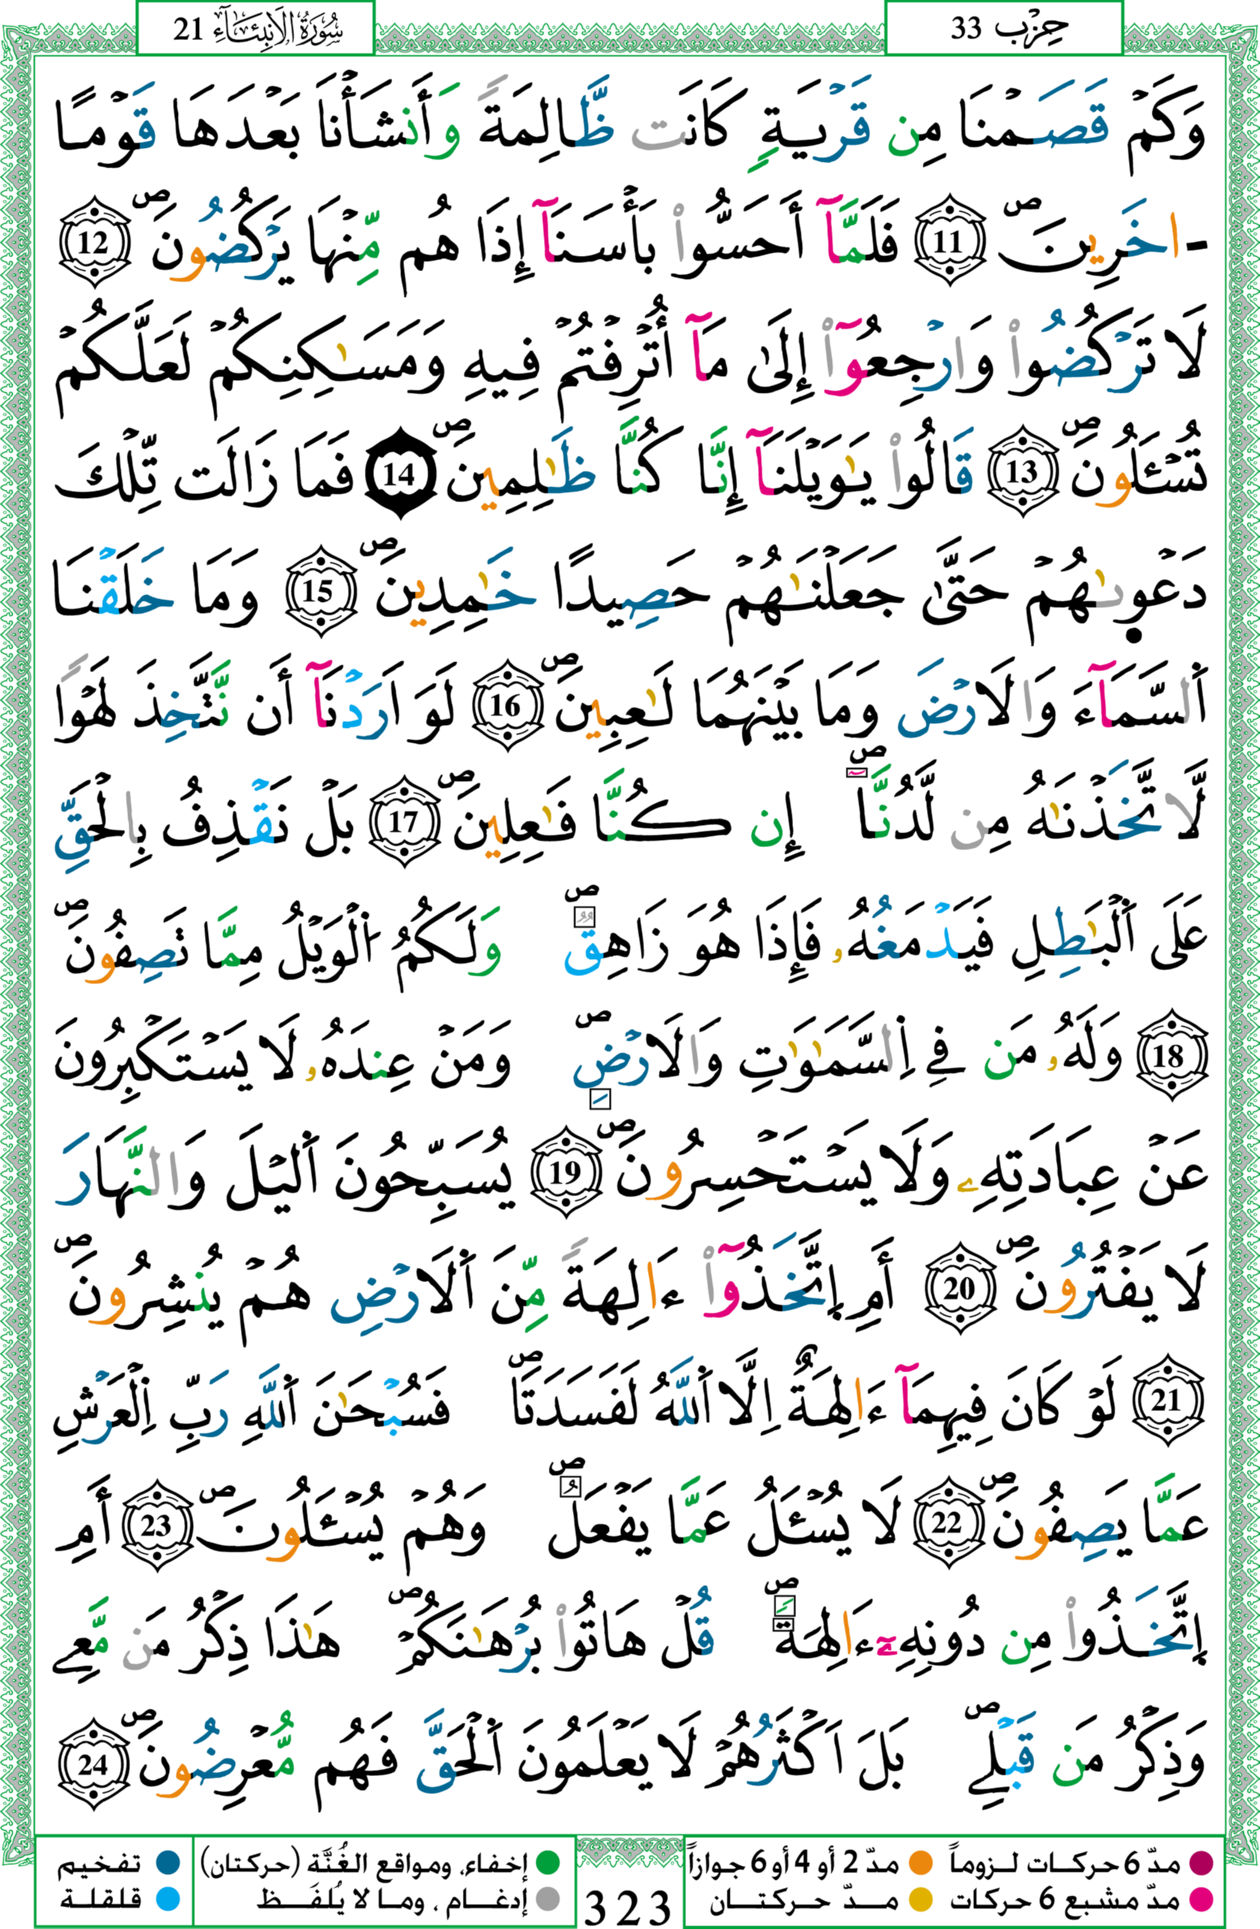 سُورَةُ الَانبِئَآءِ 21
حِزْب 33
وَكَمْ قَصَمْنَا مِن قَرْيَةٍ كَانَت ظَّالِمَةً وَأَنشَأْنَا بَعْدَهَا قَوْماً
-اخَرِينَ ۖ 11 فَلَمَّآ أَحَسُّواْ بَأْسَنَآ إِذَا هُم مِّنْهَا يَرْكُضُونَ ۖ 12
لَا تَرْكُضُواْ وَارْجِعُوٓاْ إِلَىٰ مَآ أُتْرِفْتُمْ فِيهِ وَمَسَٰكِنِكُمْ لَعَلَّكُمْ
تُسْـَٔلُونَ ۖ 13 قَالُواْ يَٰوَيْلَنَآ إِنَّا كُنَّا ظَٰلِمِينَ ۖ 14 فَمَا زَالَت تِّلْكَ
دَعْوٜىٰهُمْ حَتَّىٰ جَعَلْنَٰهُمْ حَصِيداً خَٰمِدِينَ ۖ 15 وَمَا خَلَقْنَا
اَ۬لسَّمَآءَ وَالَارْضَ وَمَا بَيْنَهُمَا لَٰعِبِينَ ۖ 16 لَوَ اَرَدْنَآ أَن نَّتَّخِذَ لَهْواً
لَّاتَّخَذْنَٰهُ مِن لَّدُنَّآ ۖ إِن كُنَّا فَٰعِلِينَ ۖ 17 بَلْ نَقْذِفُ بِالْحَقِّ
عَلَى اَ۬لْبَٰطِلِ فَيَدْمَغُهُۥ فَإِذَا هُوَ زَاهِقٌ ۖ وَلَكُمُ اُ۬لْوَيْلُ مِمَّا تَصِفُونَ ۖ
18 وَلَهُۥ مَن فِے اِ۬لسَّمَٰوَٰتِ وَالَارْضِ ۖ وَمَنْ عِندَهُۥ لَا يَسْتَكْبِرُونَ
عَنْ عِبَادَتِهِۦ وَلَا يَسْتَحْسِرُونَ ۖ 19 يُسَبِّحُونَ اَ۬ليْلَ وَالنَّهَارَ
لَا يَفْتُرُونَ ۖ 20 أَمِ اِ۪تَّخَذُوٓاْ ءَالِهَةً مِّنَ اَ۬لَارْضِ هُمْ يُنشِرُونَ ۖ
21 لَوْ كَانَ فِيهِمَآ ءَالِهَةٌ اِلَّا اَ۬للَّهُ لَفَسَدَتَا ۖ فَسُبْحَٰنَ اَ۬للَّهِ رَبِّ اِ۬لْعَرْشِ
عَمَّا يَصِفُونَ ۖ 22 لَا يُسْـَٔلُ عَمَّا يَفْعَلُ ۖ وَهُمْ يُسْـَٔلُونَ ۖ 23 أَمِ
اِ۪تَّخَذُواْ مِن دُونِهِۦٓ ءَالِهَةً ۖ قُلْ هَاتُواْ بُرْهَٰنَكُمْ ۖ هَٰذَا ذِكْرُ مَن مَّعِے
وَذِكْرُ مَن قَبْلِے ۖ بَلَ اَكْثَرُهُمْ لَا يَعْلَمُونَ اَ۬لْحَقَّ فَهُم مُّعْرِضُونَ ۖ 24
مدّ 6 حركات لـزوماً
مدّ 2 أو 4 أو 6 جوازاً
إخفاء، ومواقع الغُنَّة (حركتان)
تفخيم
مدّ مشبع 6 حركات
مــدّ حـركتــان
إدغـام ، ومـا لا يُلفَـظ
قلقلة
323